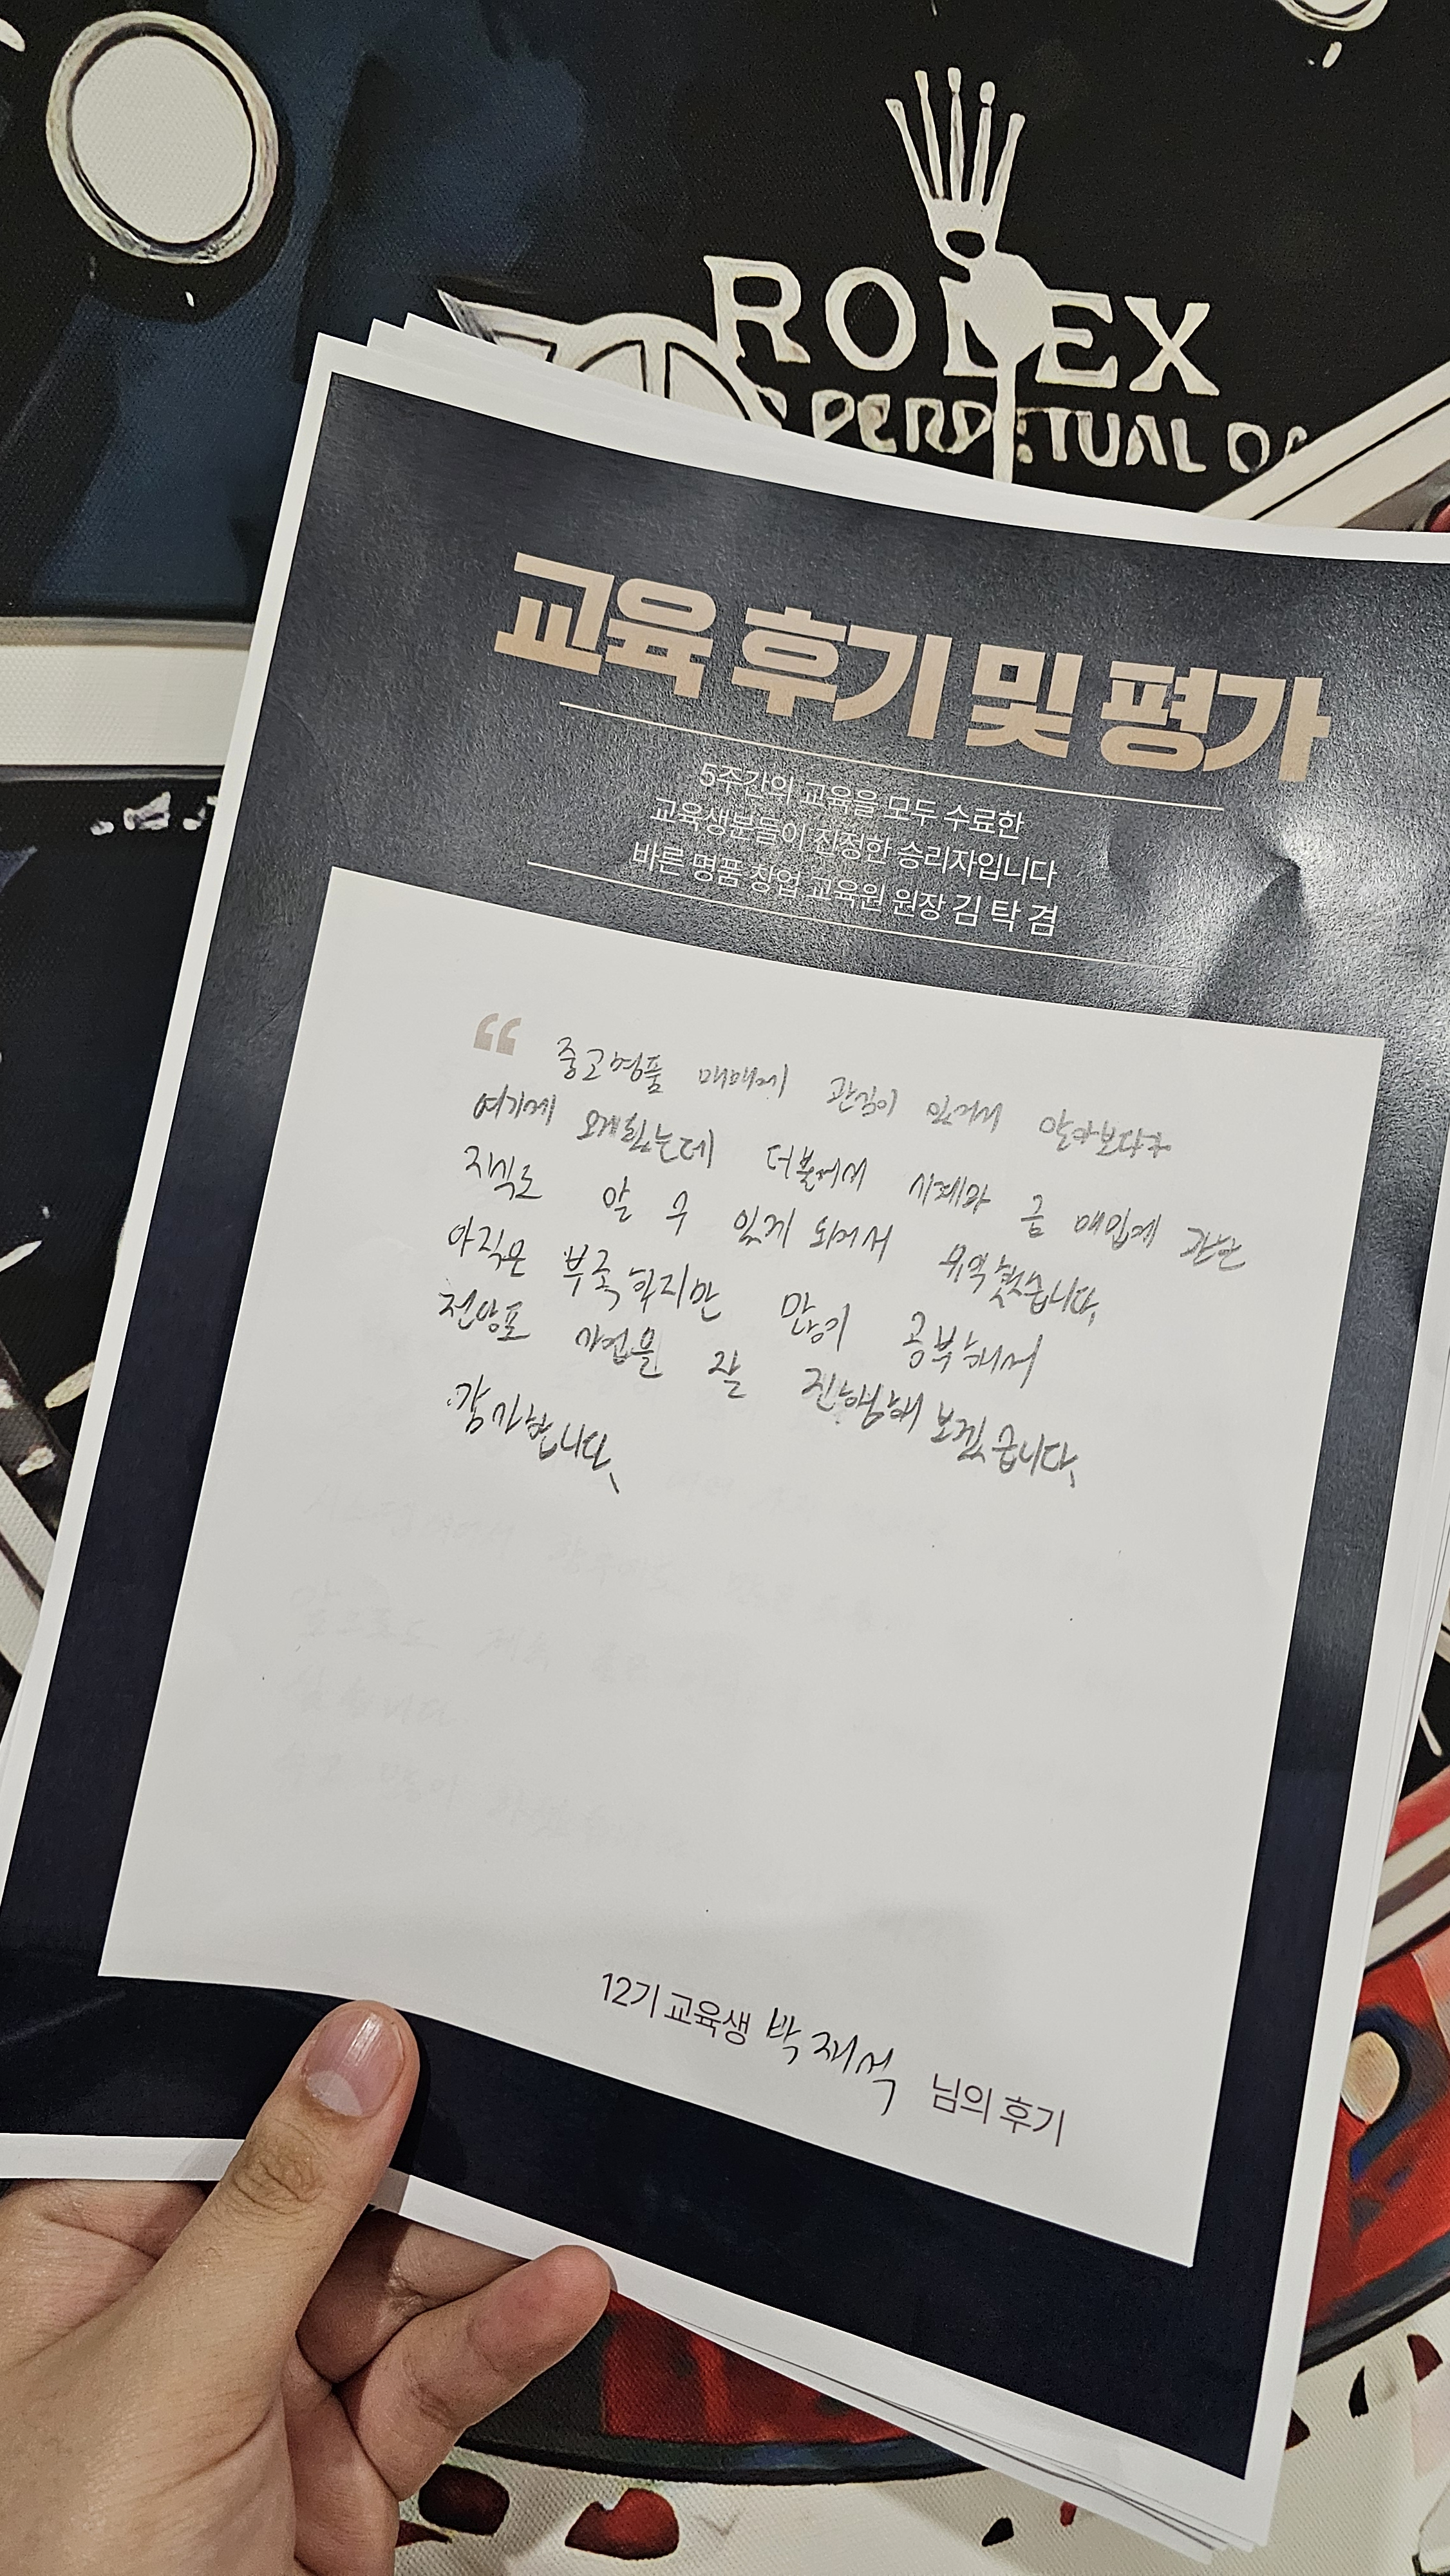 ROLEX
PERPETUAL DA
교육 후기 및 평가
5주간의 교육을 모두 수료한
교육생분들이 진정한 승리자입니다
바른 명품 창업 교육원 원장 김 탁 겸
“ 중고명품 매매에 관심이 있어서 알아보다가
여기에 오게됐는데 더불어서 시계와 금 매입에 관한
지식도 알 수 있게 되어서 유익했습니다.
아직은 부족하지만 많이 공부해서
전당포 사업을 잘 진행해 보겠습니다.
감사합니다.
12기 교육생 박재석 님의 후기